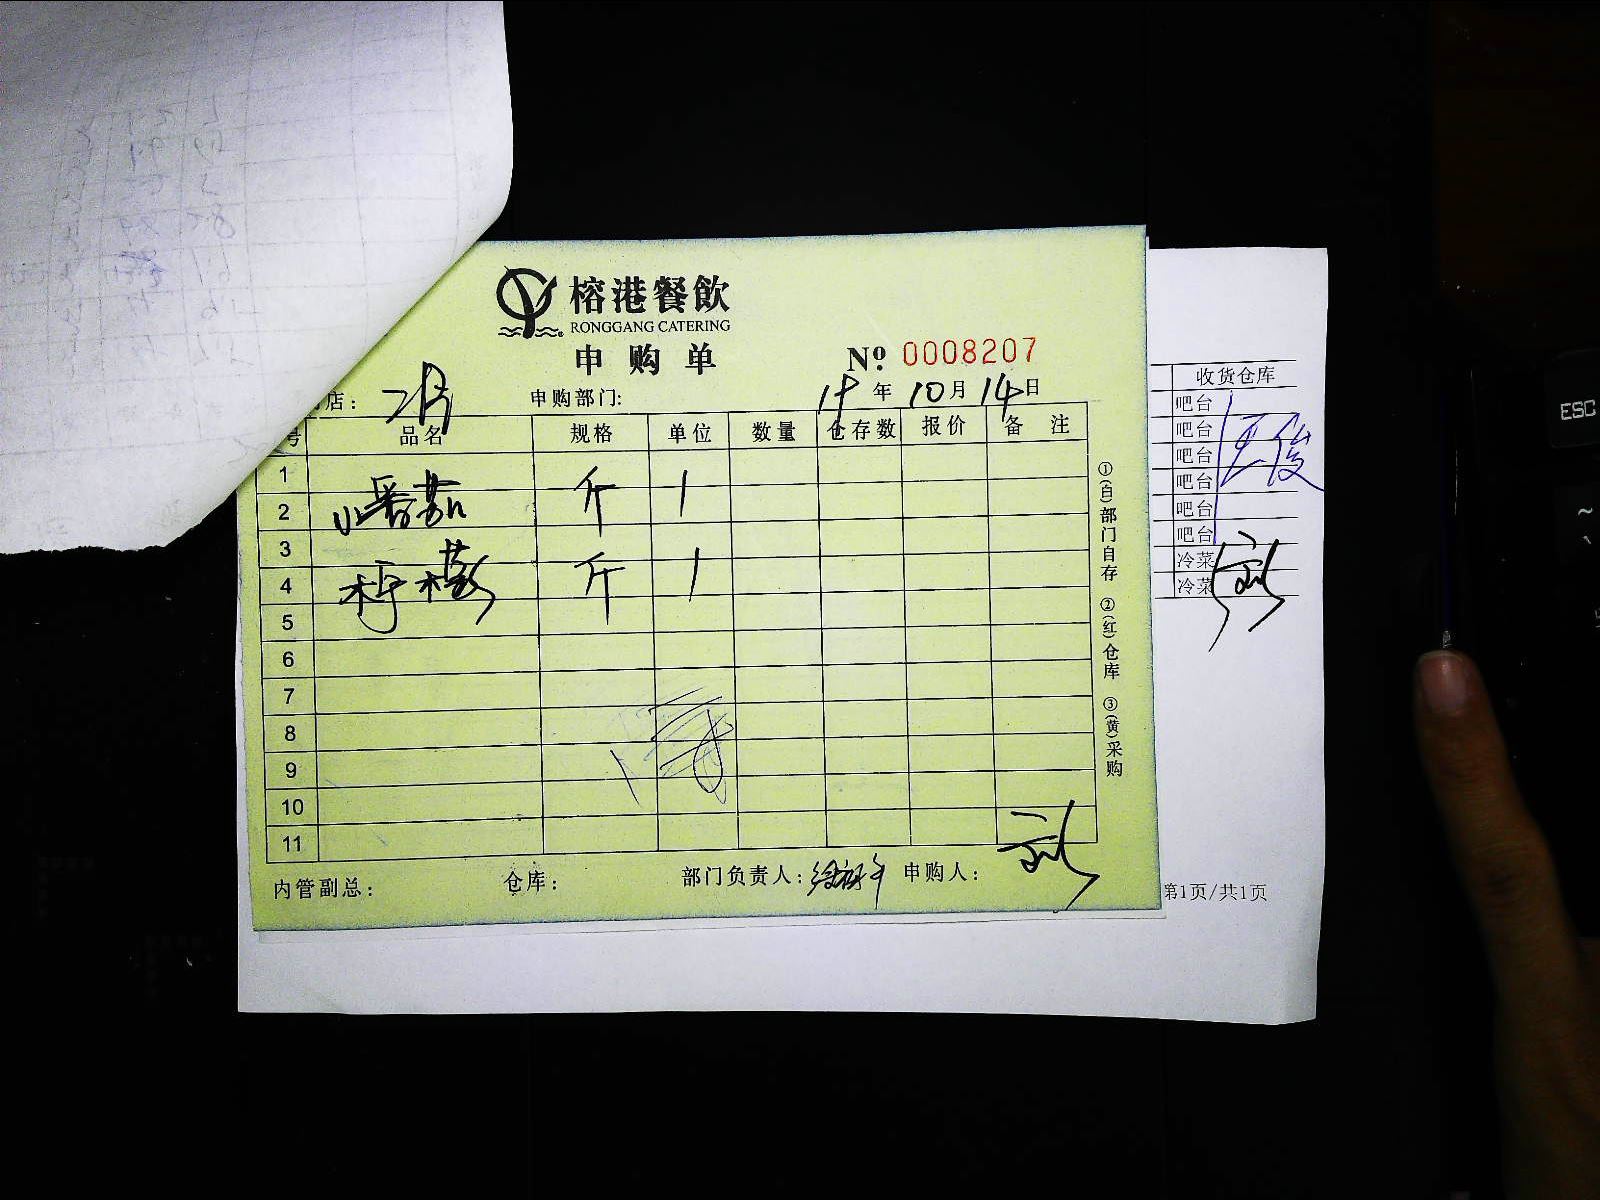 榕港餐飲
RONGGANG CATERING
申购单
№ 0008207
店：
申购部门:
年 10 月 14 日
号 品名 规格 单位 数量 仓存数 报价 备注
1
2 小番茄 斤 1
3
4 柠檬 斤 1
5
6
7
8
9
10
11
①(白)部门自存 ②(红)仓库 ③(黄)采购
内管副总： 仓库： 部门负责人： 申购人：
收货仓库
吧台
吧台
吧台
吧台
吧台
吧台
冷菜
冷菜
第1页/共1页
ESC